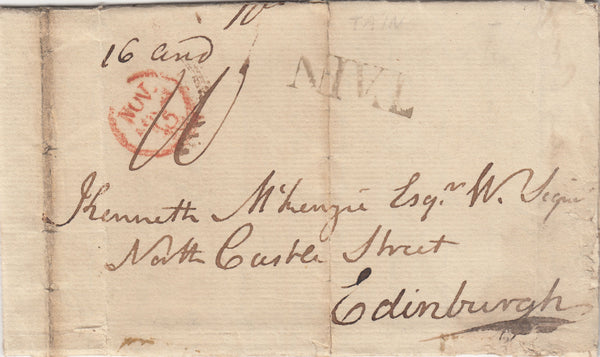 TAIN
16 and
TAIN
NOV
Kenneth McKenzie Esqr. W. Signet
North Castle Street
Edinburgh